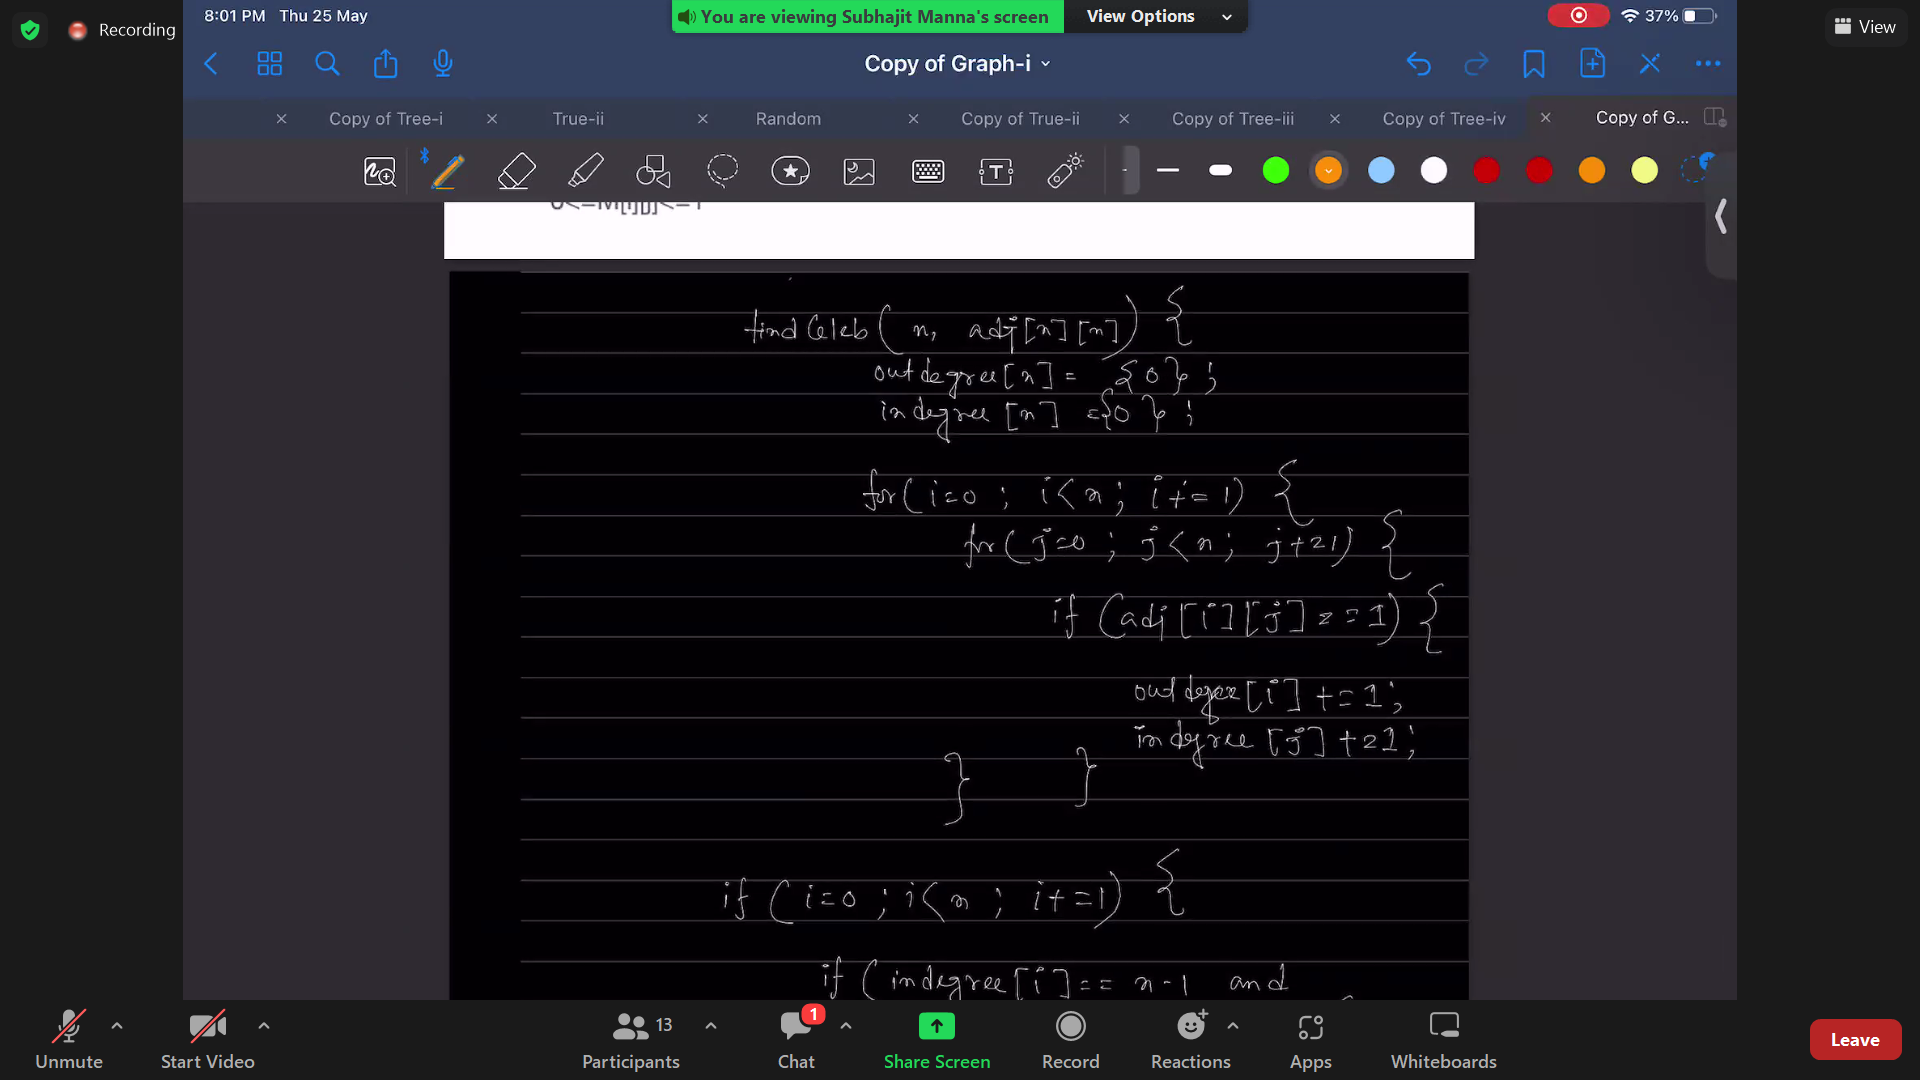 8:01 PM Thu 25 May
You are viewing Subhajit Manna's screen
View Options
37%
Recording
View
Copy of Graph-i
Copy of Tree-i
True-ii
Random
Copy of True-ii
Copy of Tree-iii
Copy of Tree-iv
Copy of G...
0<=M[i][j]<=1
findCeleb( n, adj[n][n]) {
outdegree[n] = {0};
indegree [n] ={0};
for(i=0 ; i<n; i+=1) {
for(j=0 ; j<n; j+=1) {
if (adj[i][j]==1) {
outdegree[i] +=1;
indegree [j] +=1;
} }
if (i=0 ; i<n ; i+=1) {
if (indegree[i]== n-1 and
Unmute
Start Video
13
Participants
1
Chat
Share Screen
Record
Reactions
Apps
Whiteboards
Leave